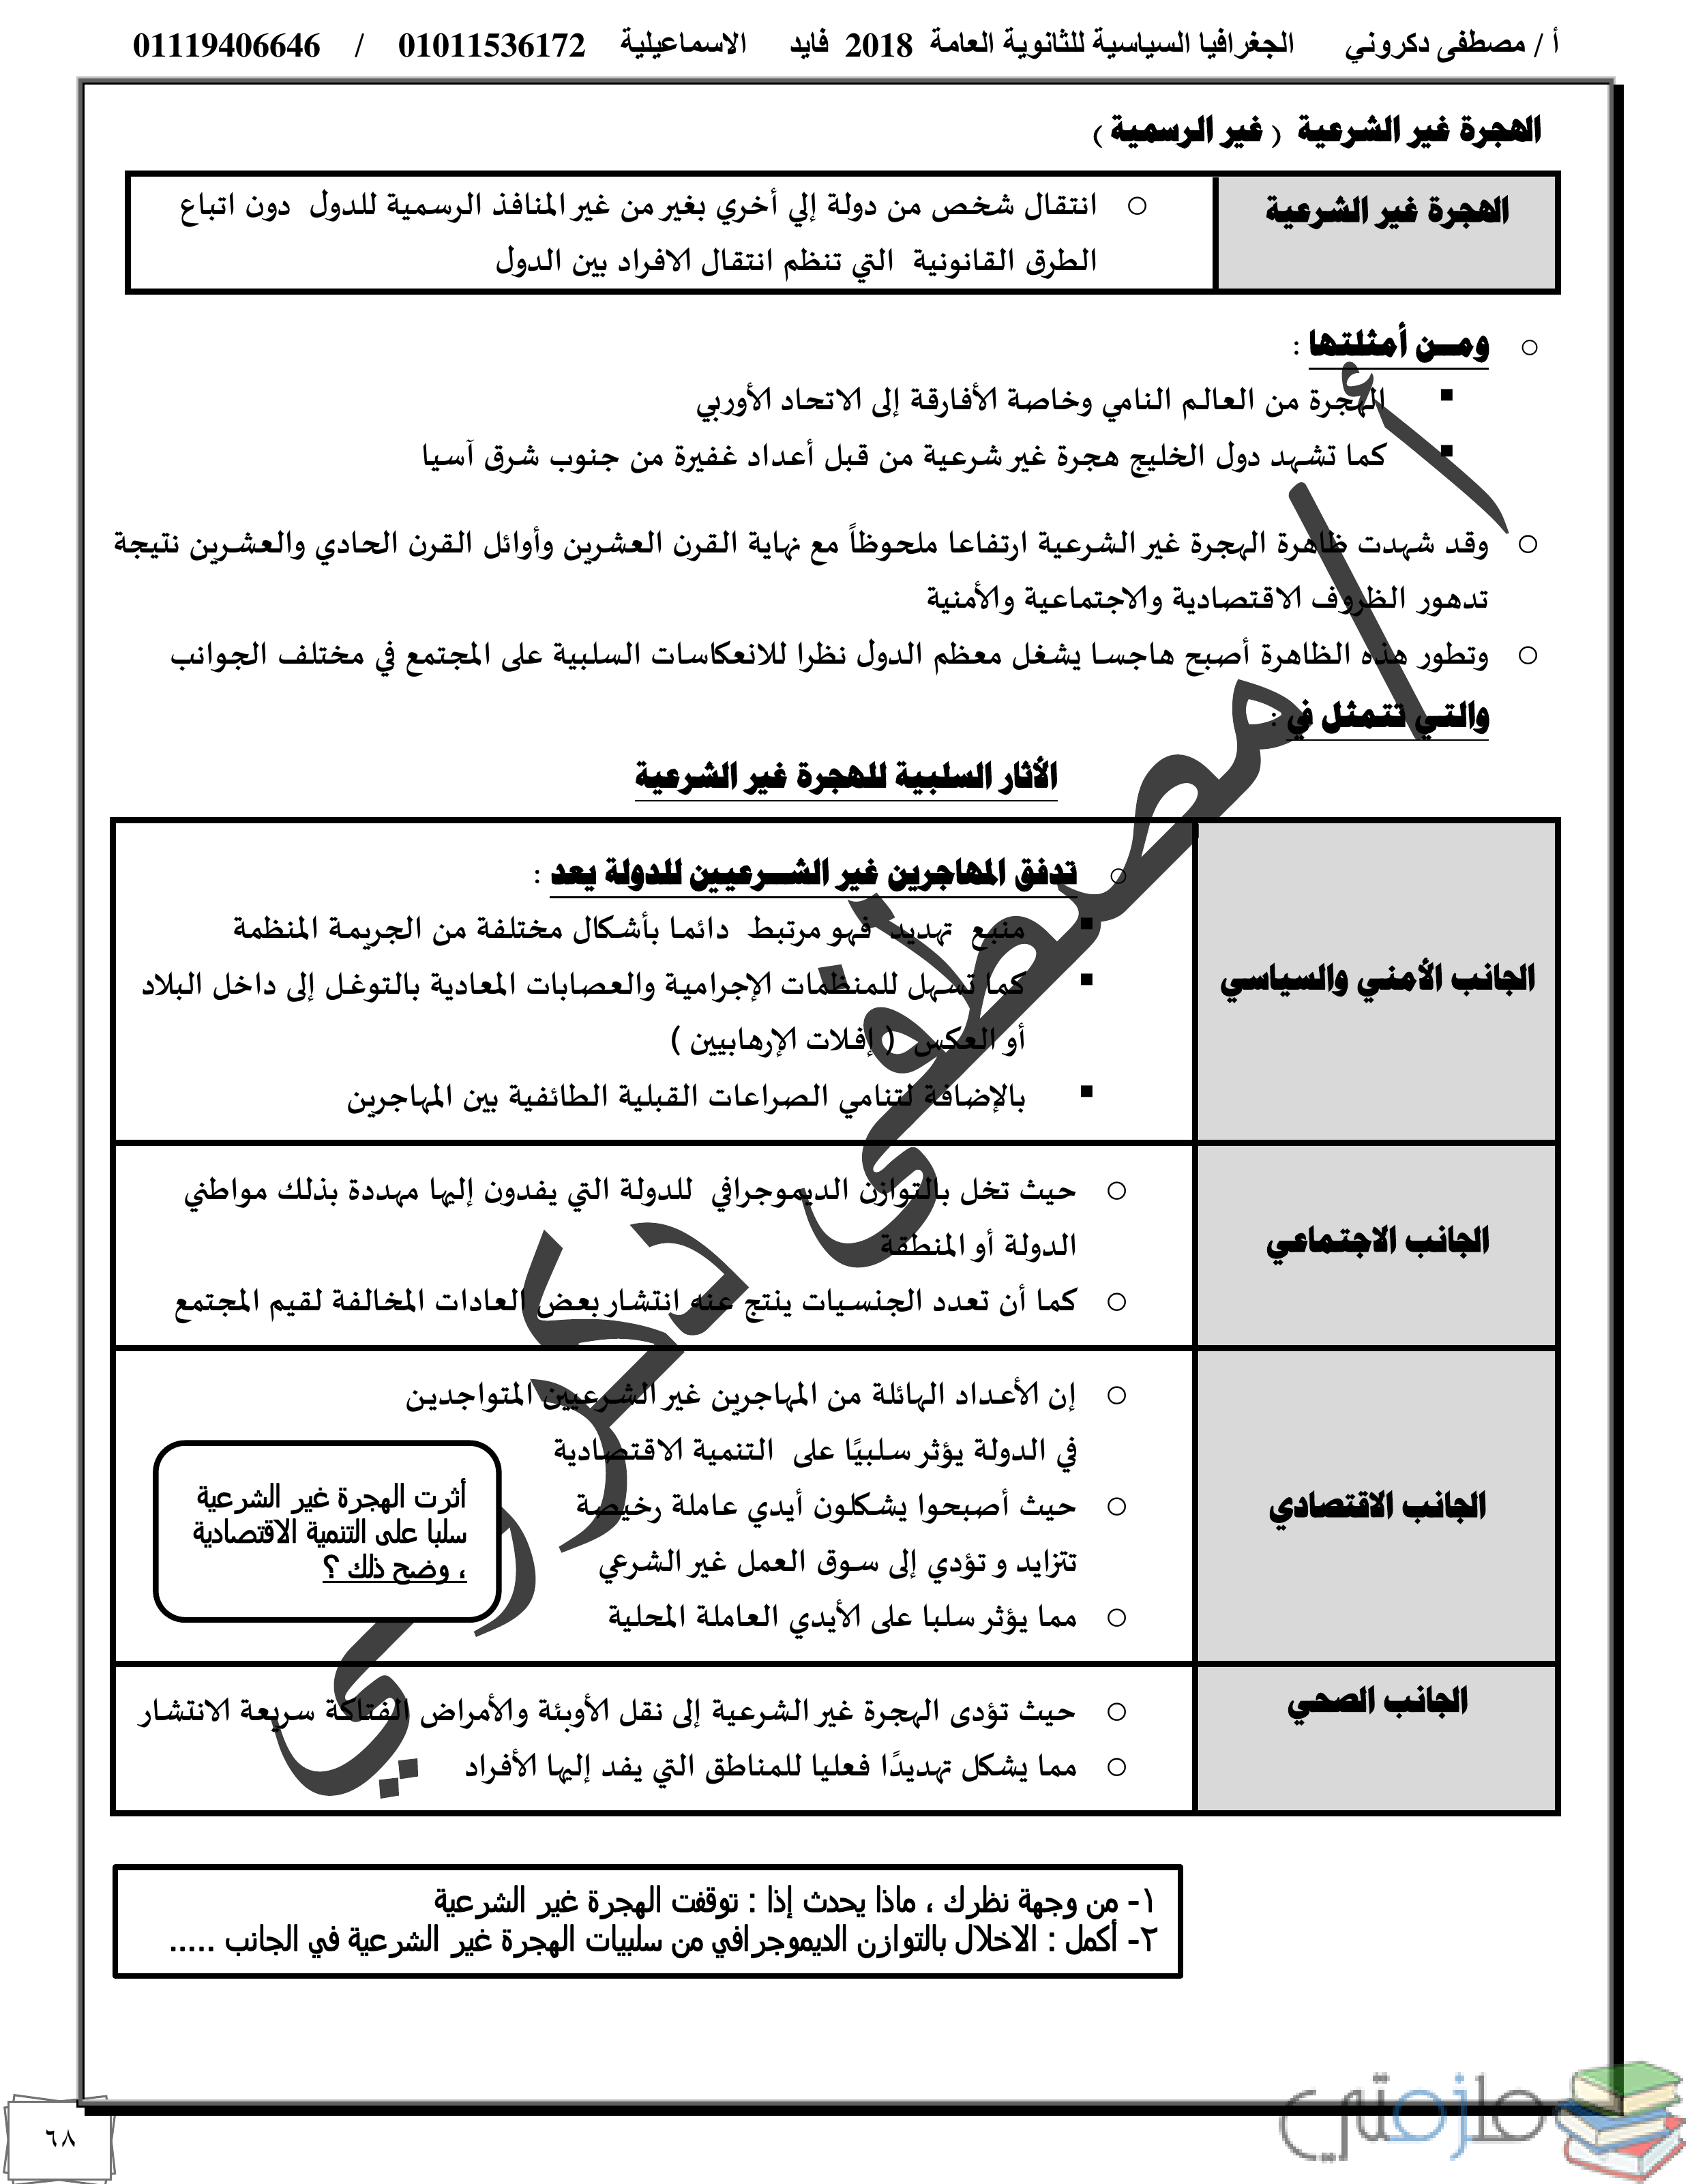 أ / مصطفى دكروني الجغرافيا السياسية للثانوية العامة 2018 فايد الاسماعيلية 01011536172 / 01119406646
الهجرة غير الشرعية ( غير الرسمية )
الهجرة غير الشرعية
○ انتقال شخص من دولة إلي أخري بغير من غير المنافذ الرسمية للدول دون اتباع
الطرق القانونية التي تنظم انتقال الافراد بين الدول
○ ومـــن أمثلتها :
▪ الهجرة من العالم النامي وخاصة الأفارقة إلى الاتحاد الأوربي
▪ كما تشهد دول الخليج هجرة غير شرعية من قبل أعداد غفيرة من جنوب شرق آسيا
○ وقد شهدت ظاهرة الهجرة غير الشرعية ارتفاعا ملحوظاً مع نهاية القرن العشرين وأوائل القرن الحادي والعشرين نتيجة
تدهور الظروف الاقتصادية والاجتماعية والأمنية
○ وتطور هذه الظاهرة أصبح هاجسا يشغل معظم الدول نظرا للانعكاسات السلبية على المجتمع في مختلف الجوانب
والتي تتمثل في :
الأثار السلبية للهجرة غير الشرعية
الجانب الأمني والسياسي
○ تدفق المهاجرين غير الشـــرعيين للدولة يعد :
▪ منبع تهديد فهو مرتبط دائما بأشكال مختلفة من الجريمة المنظمة
▪ كما تسهل للمنظمات الإجرامية والعصابات المعادية بالتوغل إلى داخل البلاد
أو العكس ( إفلات الإرهابيين )
▪ بالإضافة لتنامي الصراعات القبلية الطائفية بين المهاجرين
الجانب الاجتماعي
○ حيث تخل بالتوازن الديموجرافي للدولة التي يفدون إليها مهددة بذلك مواطني
الدولة أو المنطقة
○ كما أن تعدد الجنسيات ينتج عنه انتشار بعض العادات المخالفة لقيم المجتمع
الجانب الاقتصادي
○ إن الأعداد الهائلة من المهاجرين غير الشرعيين المتواجدين
في الدولة يؤثر سلبيًا على التنمية الاقتصادية
○ حيث أصبحوا يشكلون أيدي عاملة رخيصة
تتزايد و تؤدي إلى سوق العمل غير الشرعي
○ مما يؤثر سلبا على الأيدي العاملة المحلية
أثرت الهجرة غير الشرعية
سلبا على التنمية الاقتصادية
، وضح ذلك ؟
الجانب الصحي
○ حيث تؤدى الهجرة غير الشرعية إلى نقل الأوبئة والأمراض الفتاكة سريعة الانتشار
○ مما يشكل تهديدًا فعليا للمناطق التي يفد إليها الأفراد
١- من وجهة نظرك ، ماذا يحدث إذا : توقفت الهجرة غير الشرعية
٢- أكمل : الاخلال بالتوازن الديموجرافي من سلبيات الهجرة غير الشرعية في الجانب .....
أ / مصطفى دكروني
ملزمتي
٦٨